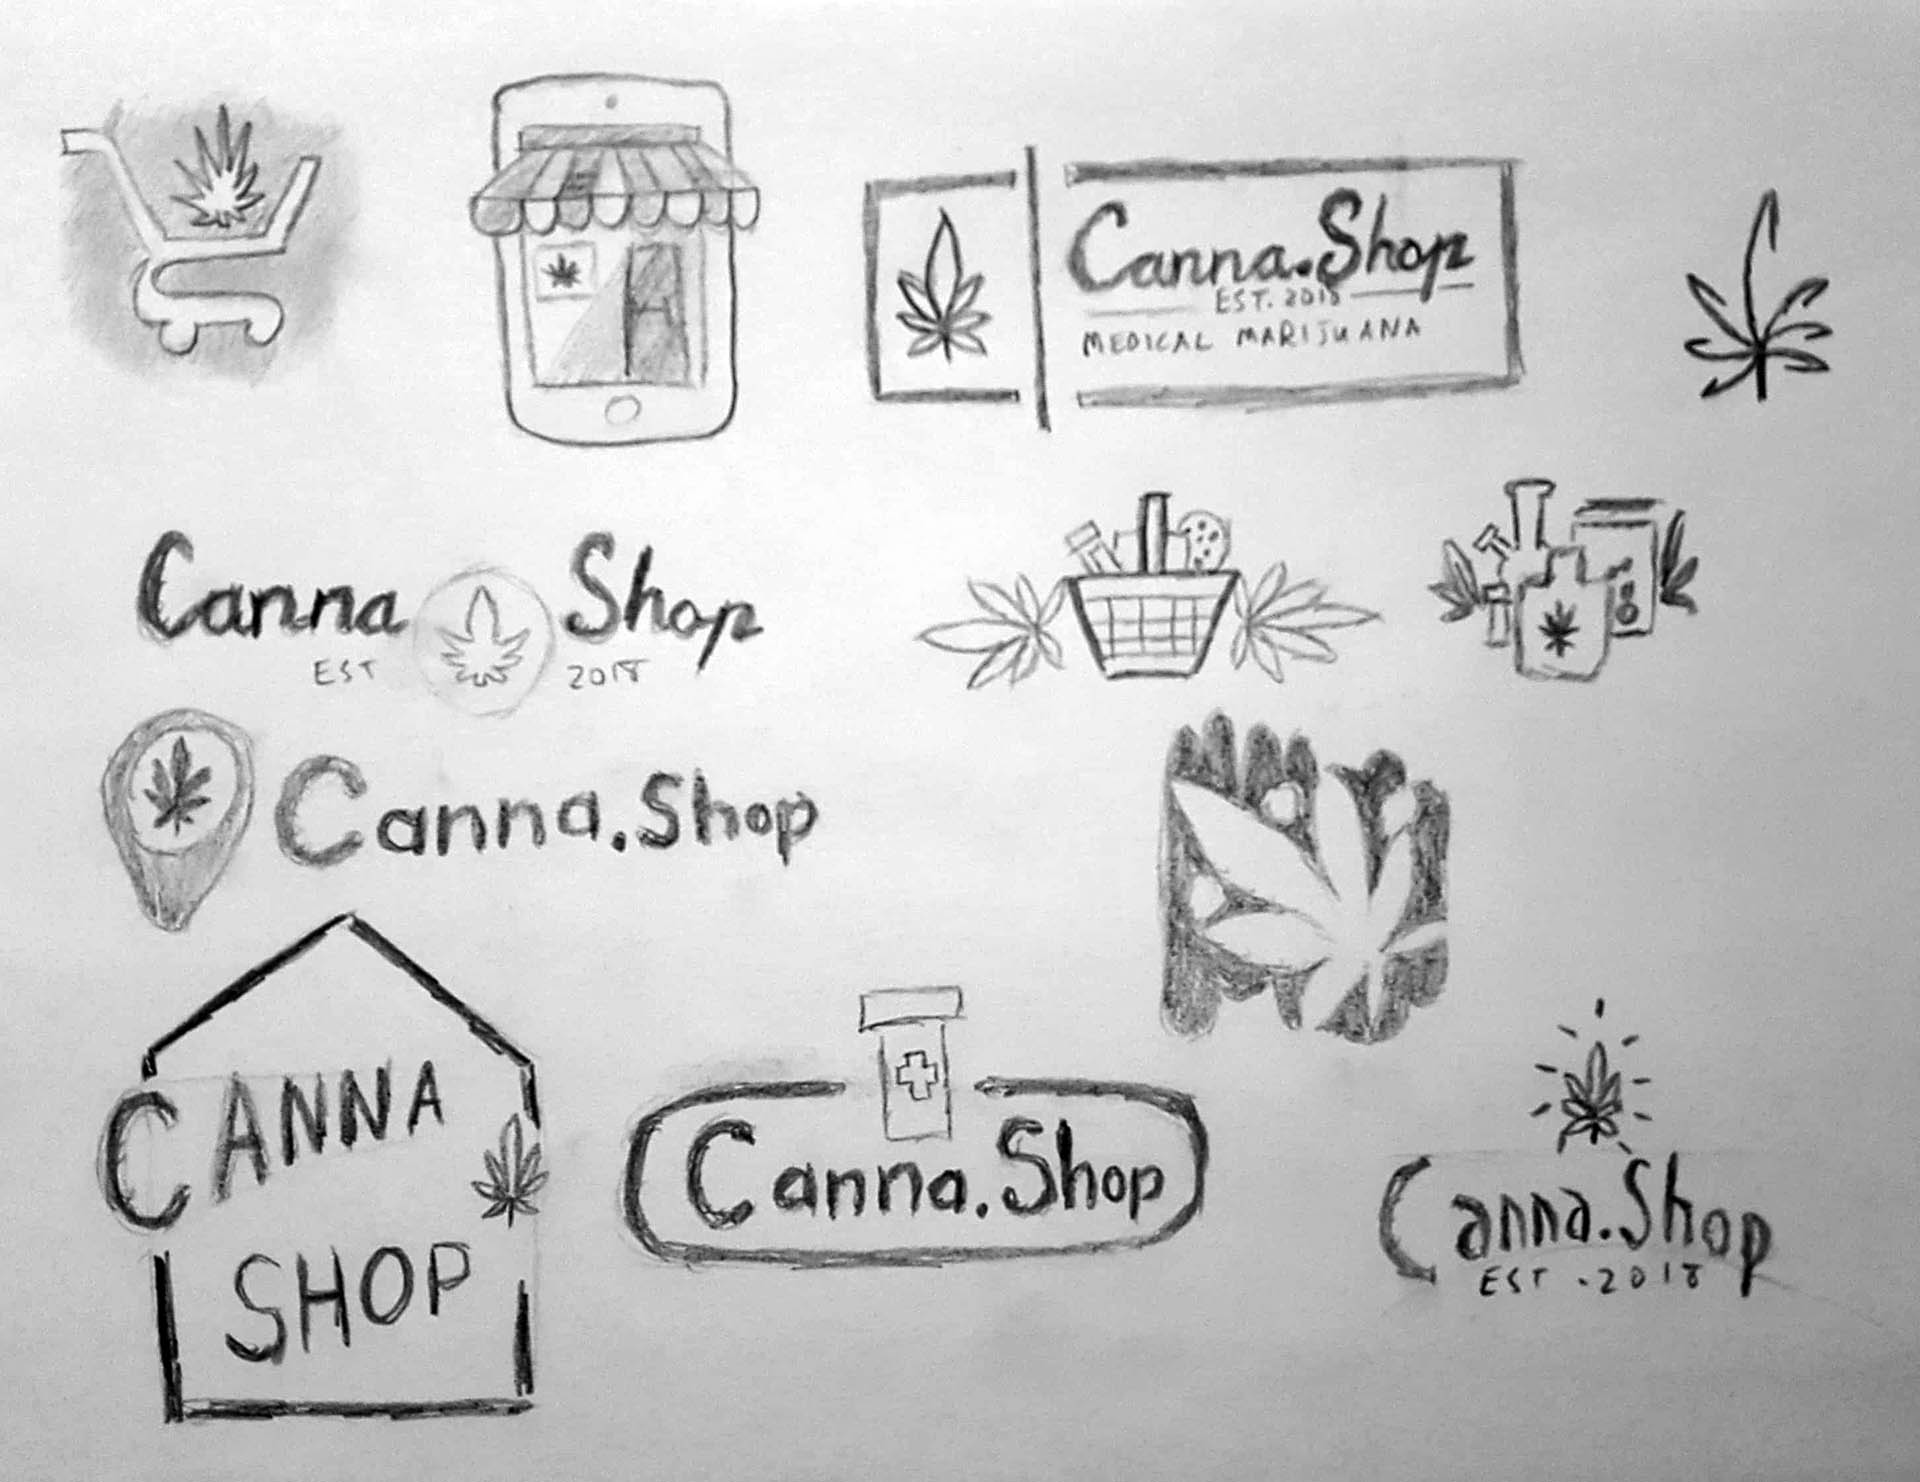 Canna.Shop
EST. 2018
MEDICAL MARIJUANA
Canna Shop
EST 2018
Canna.Shop
CANNA
SHOP
Canna.Shop
Canna.Shop
EST.2018